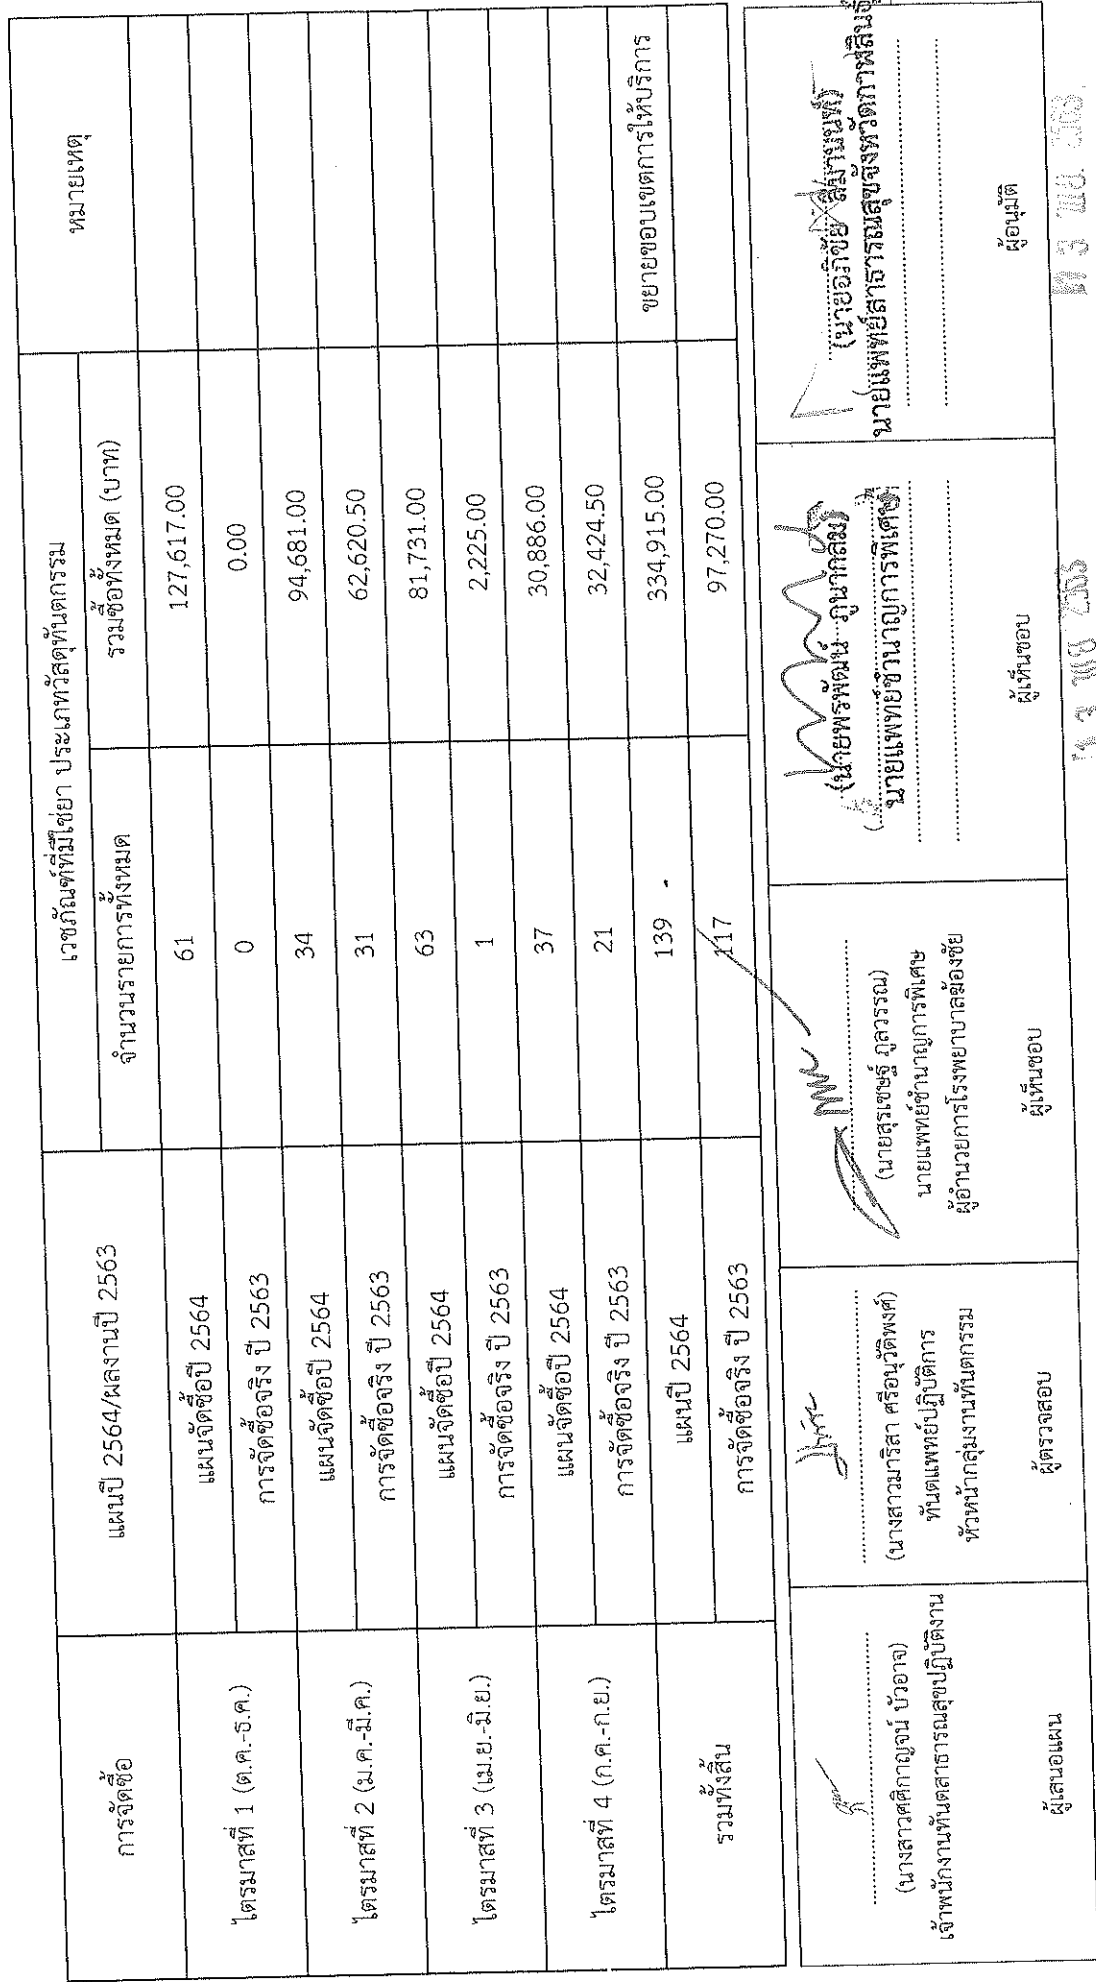 การจัดซื้อ	แผนปี 2564/ผลงานปี 2563	เวชภัณฑ์ที่มิใช่ยา ประเภทวัสดุทันตกรรม	หมายเหตุ
จำนวนรายการทั้งหมด	รวมซื้อทั้งหมด (บาท)
ไตรมาสที่ 1 (ต.ค.-ธ.ค.)	แผนจัดซื้อปี 2564	61	127,617.00
การจัดซื้อจริง ปี 2563	0	0.00
ไตรมาสที่ 2 (ม.ค.-มี.ค.)	แผนจัดซื้อปี 2564	34	94,681.00
การจัดซื้อจริง ปี 2563	31	62,620.50
ไตรมาสที่ 3 (เม.ย.-มิ.ย.)	แผนจัดซื้อปี 2564	63	81,731.00
การจัดซื้อจริง ปี 2563	1	2,225.00
ไตรมาสที่ 4 (ก.ค.-ก.ย.)	แผนจัดซื้อปี 2564	37	30,886.00
การจัดซื้อจริง ปี 2563	21	32,424.50
รวมทั้งสิ้น	แผนปี 2564	139	334,915.00	ขยายขอบเขตการให้บริการ
การจัดซื้อจริง ปี 2563	117	97,270.00
(นางสาวศศิกาญจน์ บัวอาจ)
เจ้าพนักงานทันตสาธารณสุขปฏิบัติงาน
ผู้เสนอแผน
(นางสาวมาริสา ศรีอนุวัติพงศ์)
ทันตแพทย์ปฏิบัติการ
หัวหน้ากลุ่มงานทันตกรรม
ผู้ตรวจสอบ
(นายสุรเชษฐ์ ภูลวรรณ)
นายแพทย์ชำนาญการพิเศษ
ผู้อำนวยการโรงพยาบาลฆ้องชัย
ผู้เห็นชอบ
(นายพรพัฒน์ ภูนากลม)
นายแพทย์ชำนาญการพิเศษ
ผู้เห็นชอบ
(นายอภิชัย ลิมานนท์)
นายแพทย์สาธารณสุขจังหวัดกาฬสินธุ์
ผู้อนุมัติ